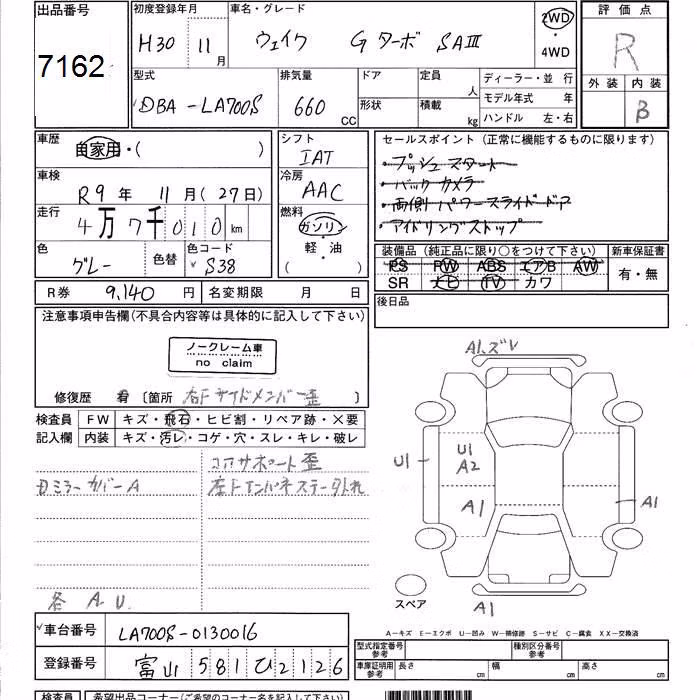 出品番号
7162
初度登録年月
H30 11月
車名・グレード
ウェイク Gターボ SAⅢ
2WD
・
4WD
評価点
R
外装 内装
B
型式
DBA-LA700S
排気量
660 CC
ドア
形状
定員
人
積載
kg
ディーラー・並行
モデル年式 年
ハンドル 左・右
車歴
自家用・( )
車検
R9年 11月(27日)
走行
4万7千010km
色
グレー
色替
色コード
S38
シフト
IAT
冷房
AAC
燃料
ガソリン
・
軽・油
( )
セールスポイント(正常に機能するものに限ります)
・プッシュスタート
・バックカメラ
・両側パワースライドドア
・アイドリングストップ
装備品(純正品に限り○をつけて下さい)
PS PW ABS エアB AW
SR ナビ TV カワ
新車保証書
有・無
後日品
R券 9,140円 名変期限 月 日
注意事項申告欄(不具合内容等は具体的に記入して下さい)
ノークレーム車
no claim
修復歴 有 〔箇所 右Fサイドメンバー歪
検査員
記入欄
FW キズ・飛石・ヒビ割・リペア跡・X要
内装 キズ・汚レ・コゲ・穴・スレ・キレ・破レ
コアサポート歪
ミラーカバーA
左Fインパネステー外れ
各 A.U.
A1、ズレ
U1
U1
A2
A1
A1
スペア
A1
A-キズ E-エクボ U-凹み W-補修跡 S-サビ C-腐食 XX-交換済
車台番号 LA700S-0130016
登録番号 富山 581 ひ 2126
型式指定番号
参考
種別区分番号
参考
車庫証明用
参考
長さ cm
幅 cm
高さ cm
検査員
希望出品コーナー(ご希望のコーナー名を記入して下さい)